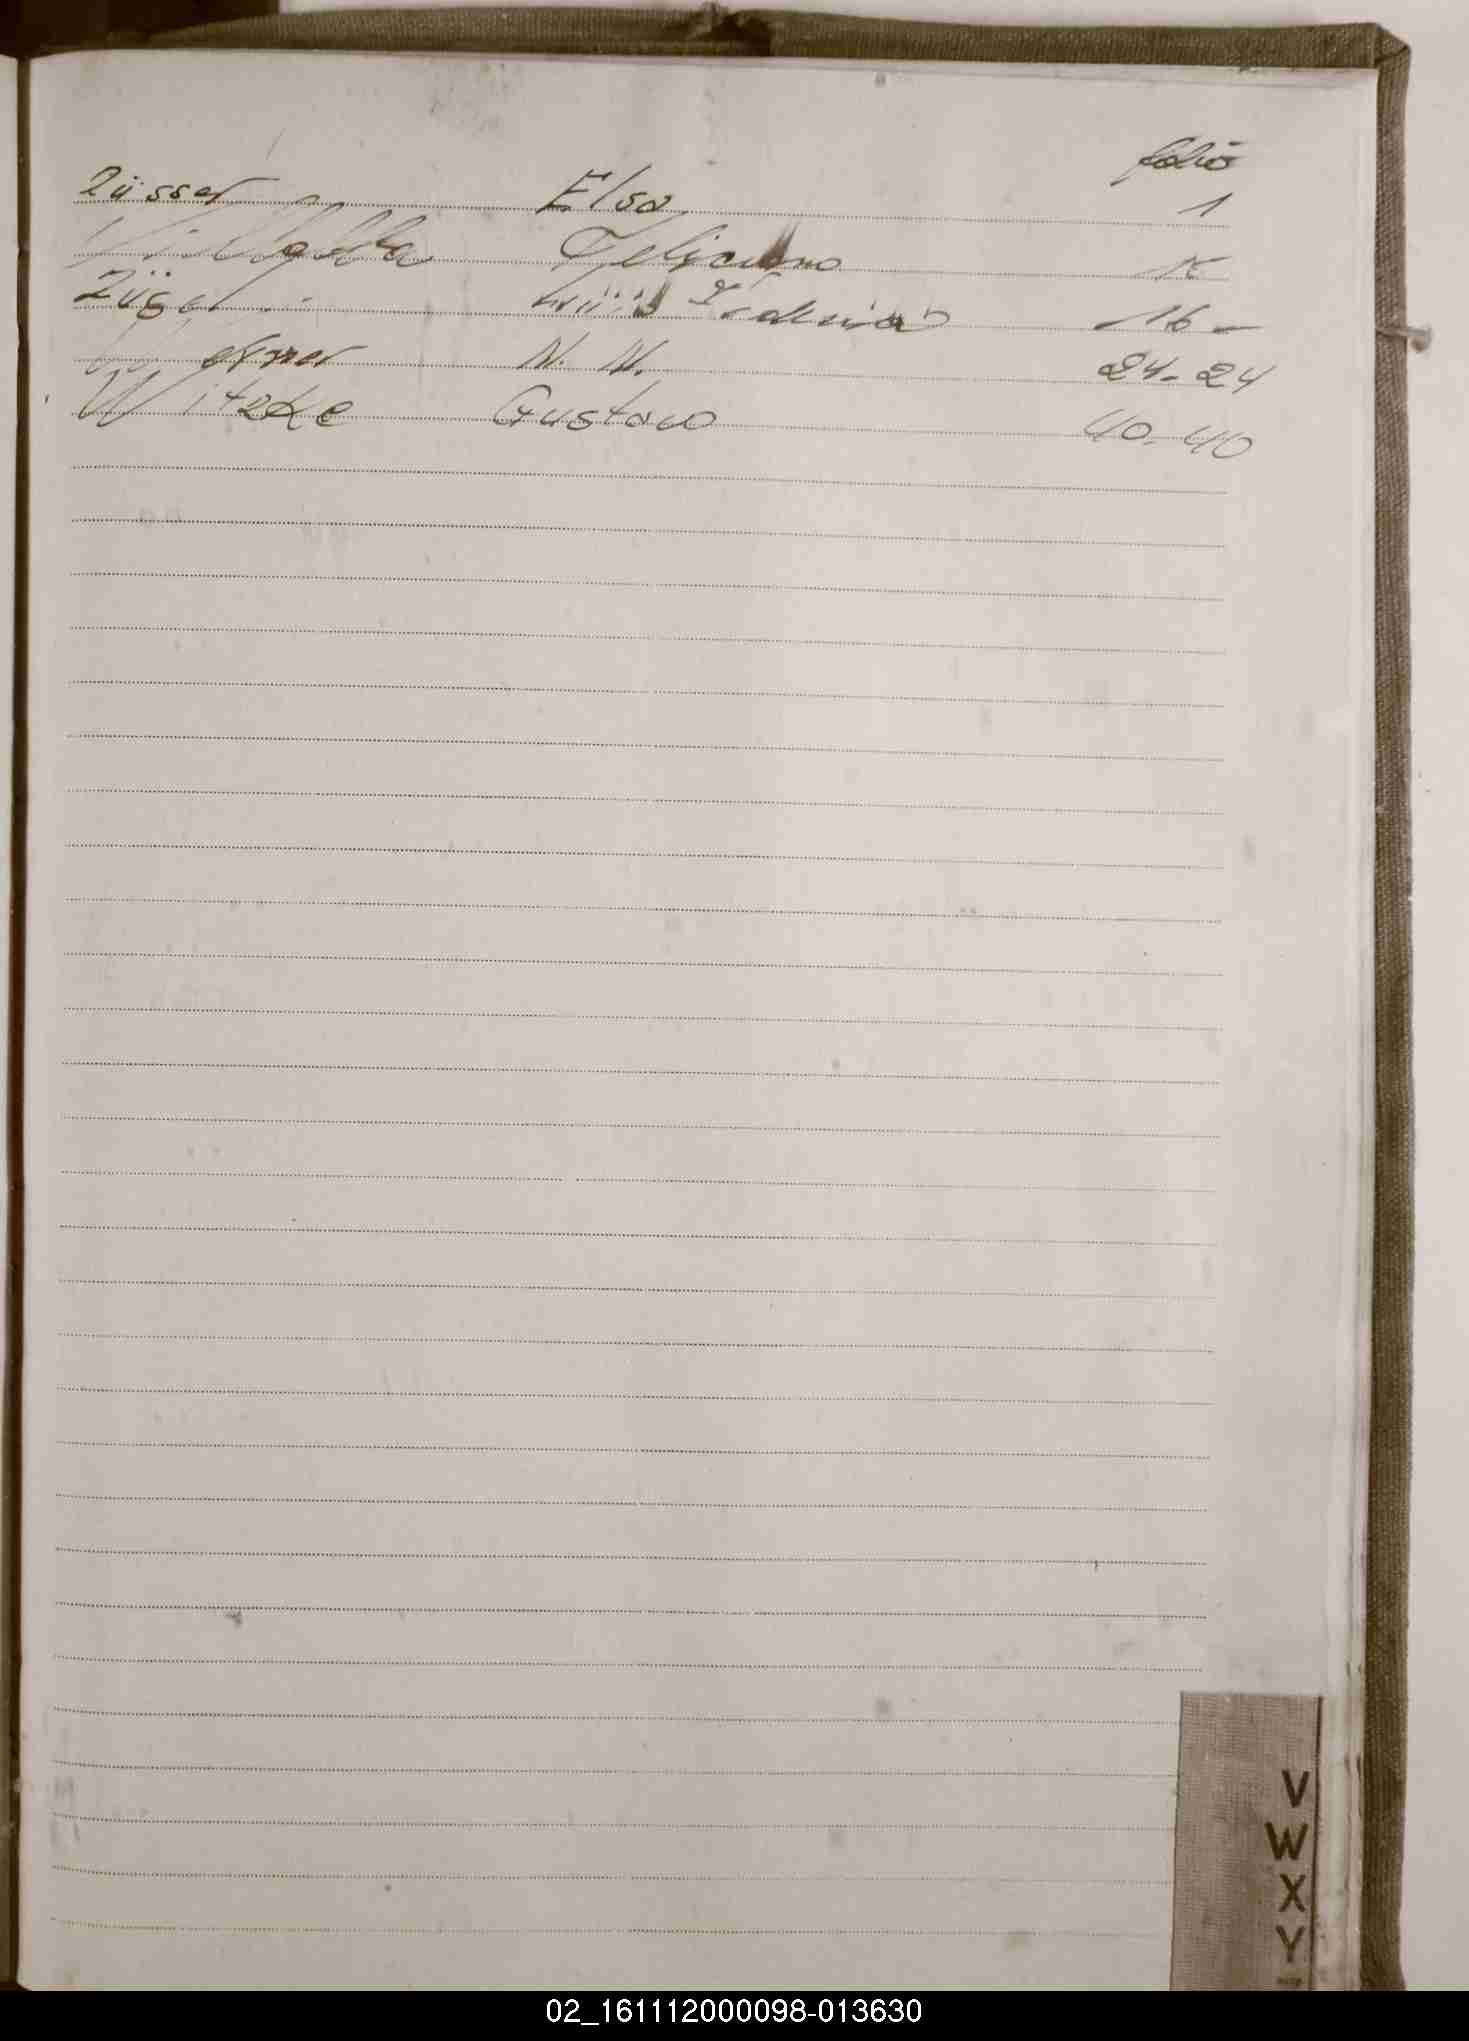 folio
Züsser Elsa 1
Villalba Feliciano 15
Züge 16 -
Werner N. N. 24-24
Witzke Gustavo 40-40
V
W
X
Y
02_161112000098-013630